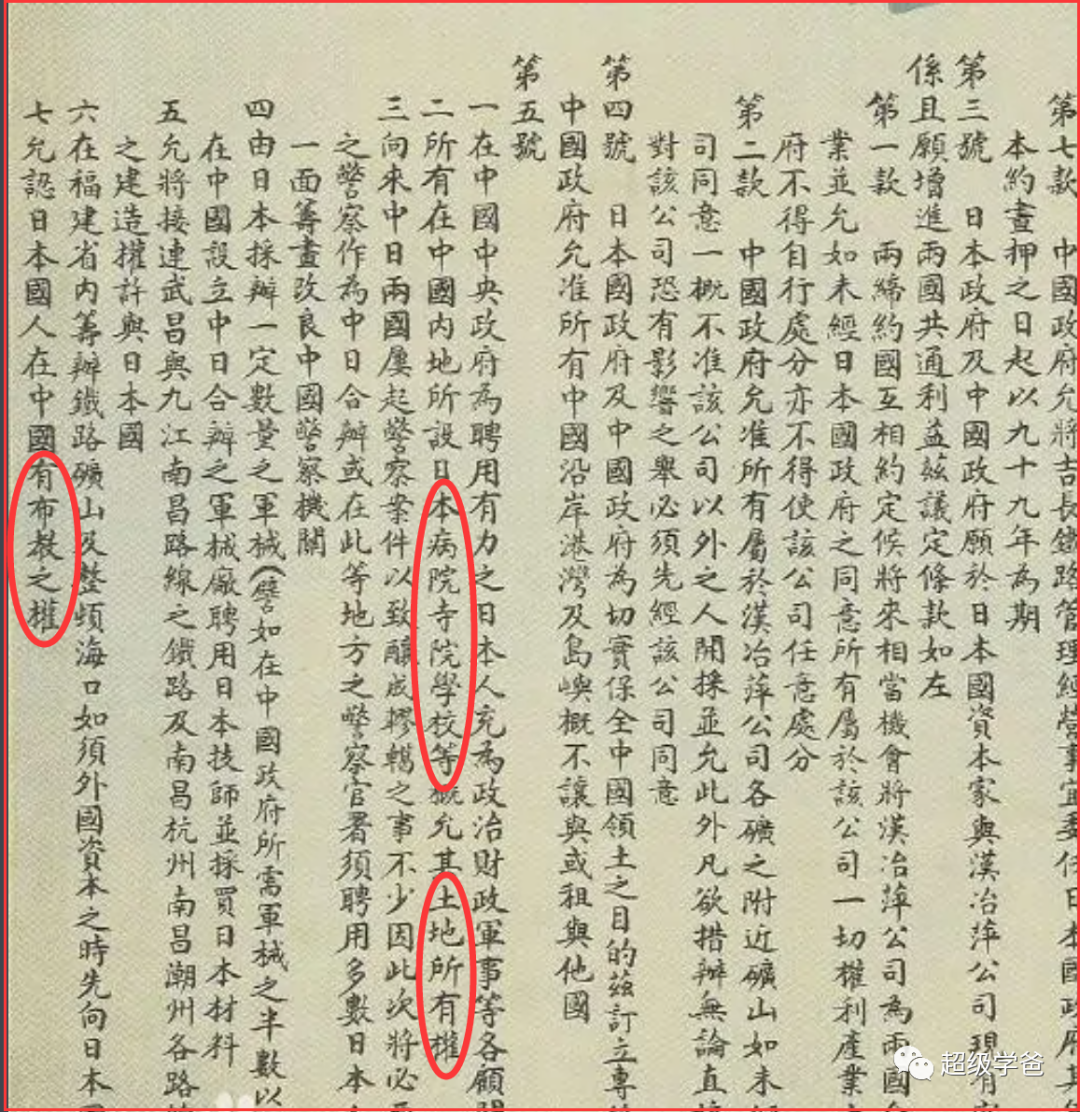 第七款 中國政府允將吉長鐵路管理經營事宜委任日本國政府其
本約畫押之日起以九十九年為期
第三號 日本政府及中國政府願於日本國資本家與漢冶萍公司現有
係且願增進兩國共通利益茲議定條款如左
第一款 兩締約國互相約定俟將來相當機會將漢冶萍公司為兩國
業並允如未經日本國政府之同意所有屬於該公司一切權利產業
府不得自行處分亦不得使該公司任意處分
第二款 中國政府允准所有屬於漢冶萍公司各礦之附近礦山如未
司同意一概不准該公司以外之人開採並允此外凡欲措辦無論直接
對該公司恐有影響之舉必須先經該公司同意
第四號 日本國政府及中國政府為切實保全中國領土之目的茲訂立專
中國政府允准所有中國沿岸港灣及島嶼概不讓與或租與他國
第五號
一在中國中央政府為聘用有力之日本人充為政治財政軍事等各顧問
二所有在中國內地所設日本病院寺院學校等概允其土地所有權
三向來中日兩國屢起警察案件以致釀成轇轕之事不少因此次將必
之警察作為中日合辦或在此等地方之警察官署須聘用多數日本
一面籌畫改良中國警察機關
四由日本採辦一定數量之軍械(譬如在中國政府所需軍械之半數以
在中國設立中日合辦之軍械廠聘用日本技師並採買日本材料
五允將接連武昌與九江南昌路線之鐵路及南昌杭州南昌潮州各路
之建造權許與日本國
六在福建省內籌辦鐵路礦山及整頓海口如須外國資本之時先向日本
七允認日本國人在中國有布教之權
超级学爸